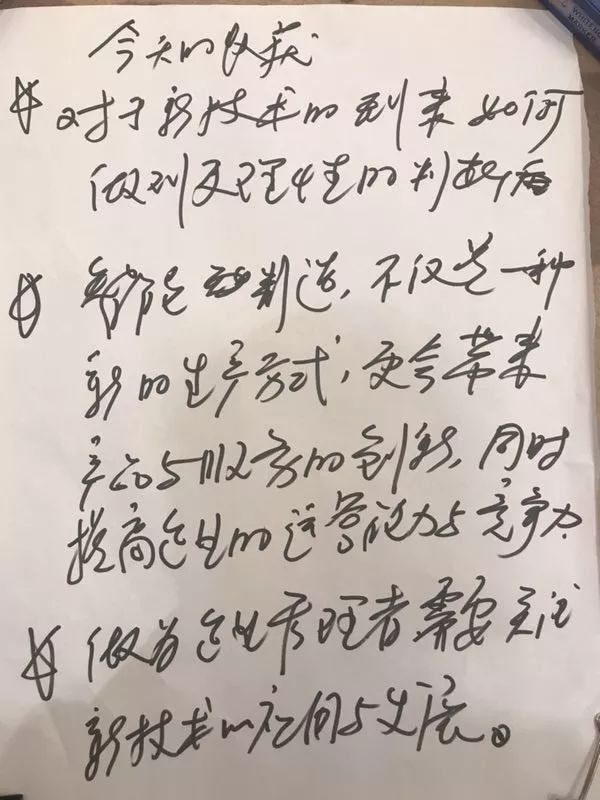 今天的收获
☆ 对于新技术的到来如何
做到更理性的判断
☆ 智能制造,不仅是一种
新的生产方式,更会带来
产品与服务的创新,同时
提高企业的运营能力与竞争力
☆ 做为企业管理者需要关注
新技术的应用与发展。